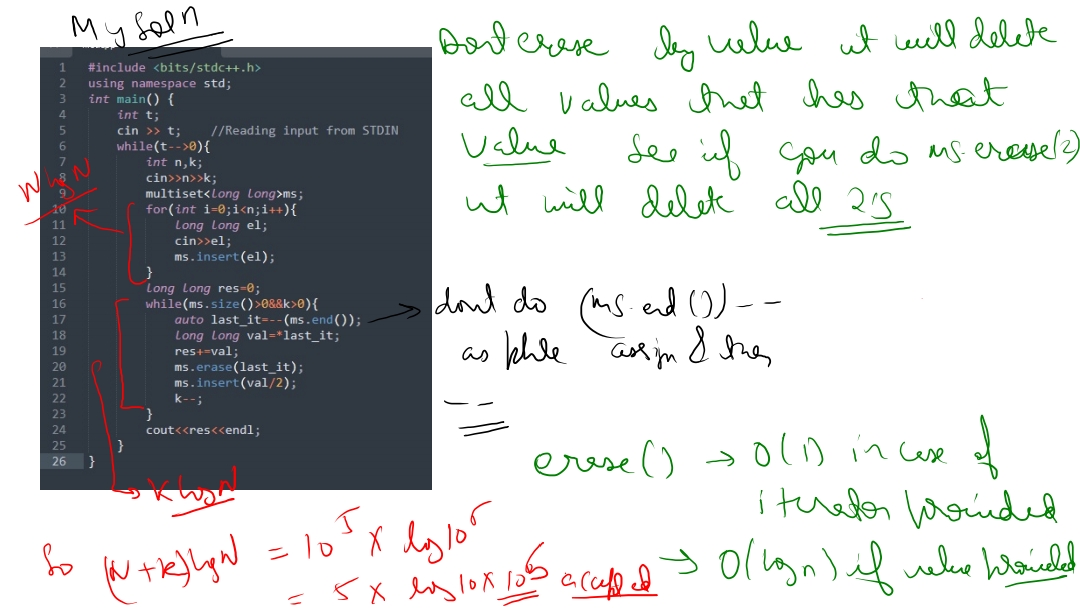 My Soln
1 #include <bits/stdc++.h>
2 using namespace std;
3 int main() {
4 int t;
5 cin >> t; //Reading input from STDIN
6 while(t-->0){
7 int n,k;
8 cin>>n>>k;
9 multiset<long long>ms;
10 for(int i=0;i<n;i++){
11 long long el;
12 cin>>el;
13 ms.insert(el);
14 }
15 long long res=0;
16 while(ms.size()>0&&k>0){
17 auto last_it=--(ms.end());
18 long long val=*last_it;
19 res+=val;
20 ms.erase(last_it);
21 ms.insert(val/2);
22 k--;
23 }
24 cout<<res<<endl;
25 }
26 }
N log N
K log N
Dont erase by value it will delete
all values that has that
value see if you do ms.erase(2)
it will delete all 2's
dont do (ms.end())--
as phle assign & then
--
erase() → O(1) in case of
iterator provided
→ O(log n) if value provided
So (N+K) log N = 10^5 x log 10^6
= 5 x log 10 x 10^6 accepted